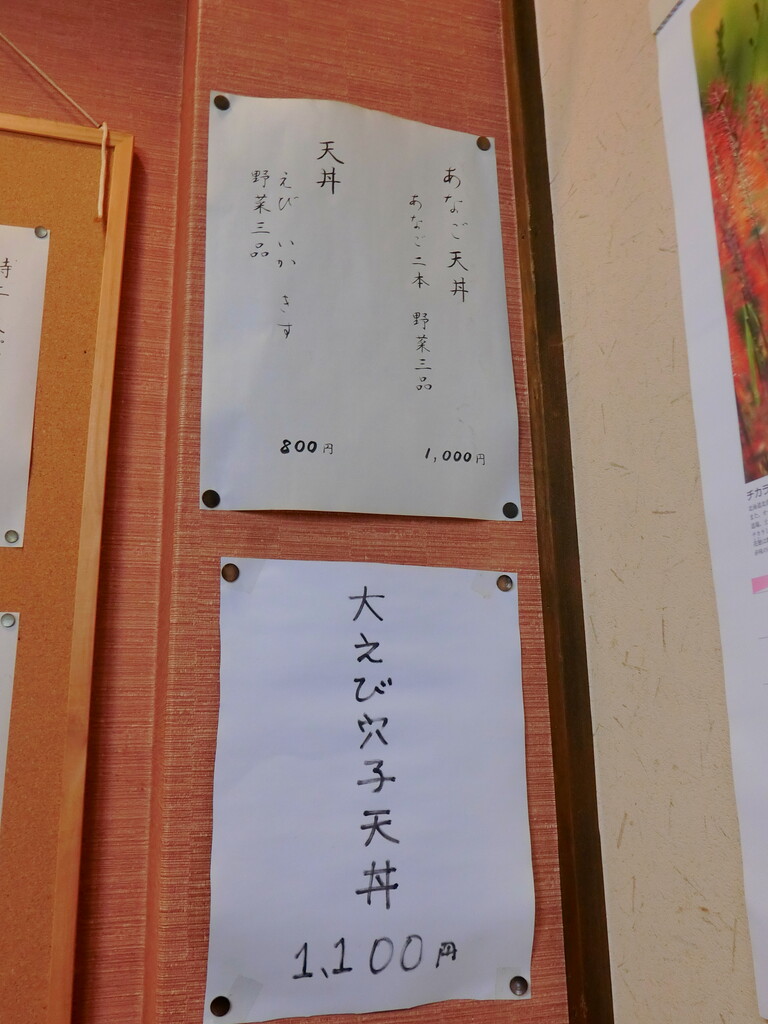 あなご天丼
あなご二本 野菜三品
1,000円
天丼
えび いか きす
野菜三品
800円
大えび穴子天丼
1,100円
チカラ